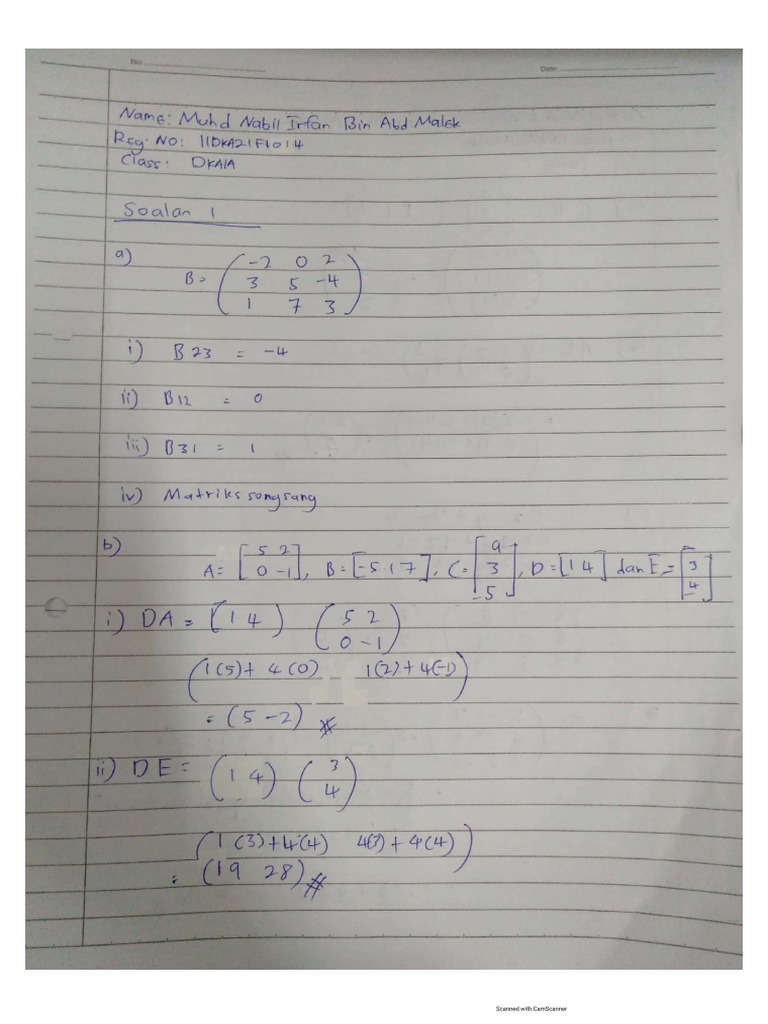 No:
Date:
Name: Muhd Nabil Irfan Bin Abd Malek
Reg. No: 11DKA21F1014
Class: DKA1A
Soalan 1
a)
B = ( -2 0 2
3 5 -4
1 7 3 )
i) B23 = -4
ii) B12 = 0
iii) B31 = 1
iv) Matriks songsang
b)
A = [ 5 2
0 -1 ], B = [-5 1 7], C = [ 9
3
-5 ], D = [1 4] dan E = [ 3
4 ]
i) DA = [1 4) ( 5 2
0 -1 )
( 1(5) + 4(0) 1(2) + 4(-1) )
= (5 -2)
ii) DE = ( 1 4 ) ( 3
4 )
( 1(3)+4(4) 4(3)+4(4) )
= (19 28)
Scanned with CamScanner